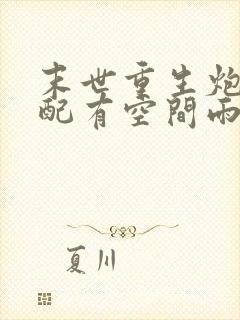 末世重生炮
配有空間兩
夏川